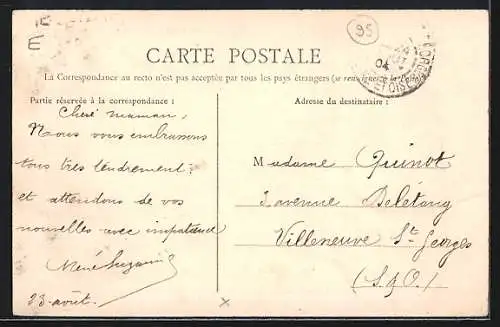 95
CARTE POSTALE
La Correspondance au recto n'est pas acceptée par tous les pays étrangers (se renseigner à la Poste)
Partie réservée à la correspondance :
Adresse du destinataire :
Chère maman,
Nous vous embrassons
tous très tendrement
et attendons de vos
nouvelles avec impatience
23 août.
Madame Quinot
avenue Deletang
Villeneuve St Georges
(S & O.)